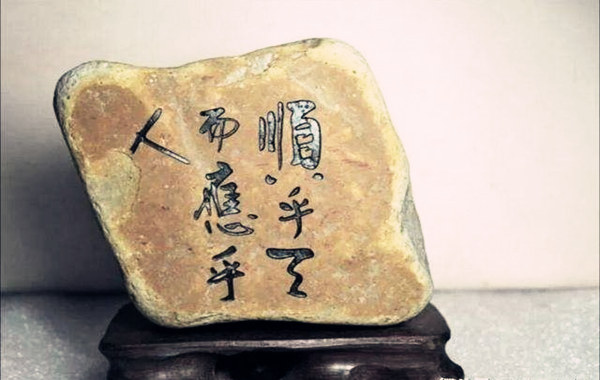 順乎天
而應乎
人